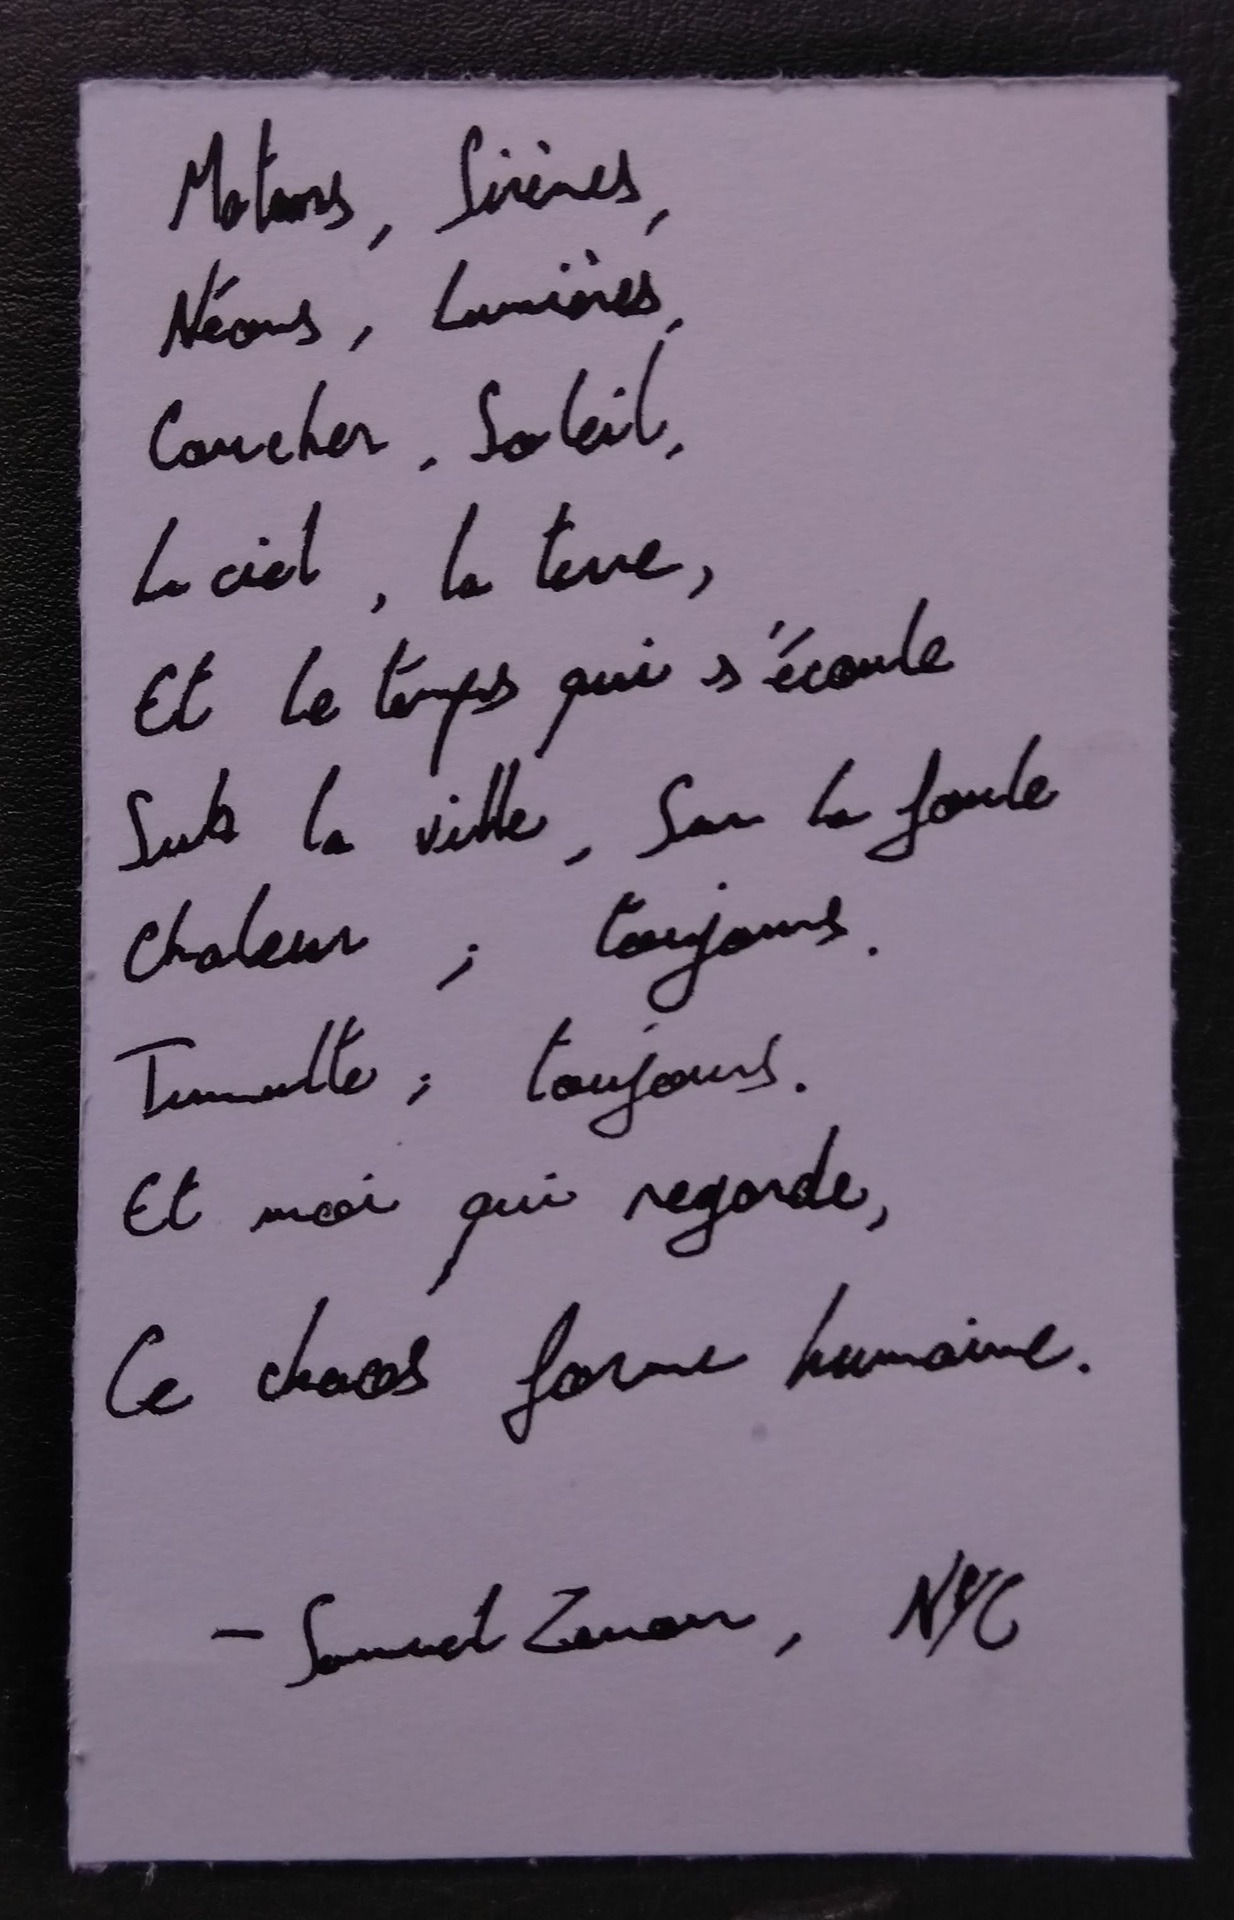 Moteurs, Sirènes,
Néons, Lumières,
Coucher, Soleil,
Le ciel, la terre,
Et le temps qui s'écoule
Sub la ville, Sur la foule
Chaleur ; toujours.
Tumulte ; toujours.
Et moi qui regarde,
Ce chaos forme humaine.
- Samuel Zenon, NYC